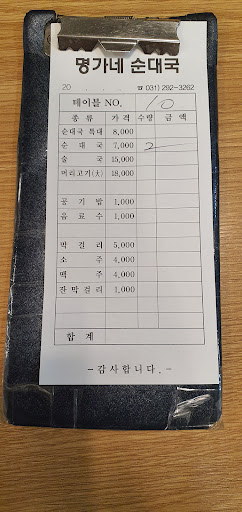 명가네 순대국
20 . . . ☎ 031) 292-3262
테이블 NO. 10
종 류 가 격 수량 금 액
순대국 특대 8,000
순 대 국 7,000 2
술 국 15,000
머리고기(大) 18,000
공 기 밥 1,000
음 료 수 1,000
막 걸 리 5,000
소 주 4,000
맥 주 4,000
잔 막 걸 리 1,000
합 계
- 감 사 합 니 다 . -